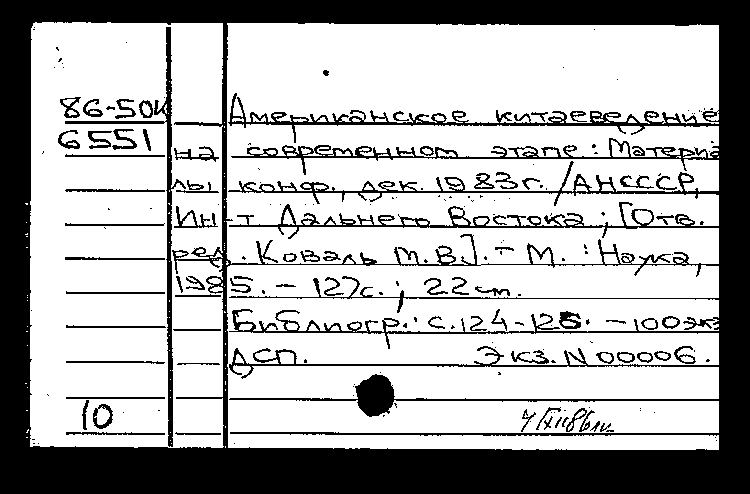 86-50к Американское китаеведение
6551 на современном этапе : Материа
лы конф., дек. 1983г. / АНСССР,
Ин-т Дальнего Востока ; [Отв.
ред. Коваль М.В.]. - М. : Наука,
1985. - 127с. ; 22 см.
Библиогр.: с.124-126. - 100экз
ДСП. Экз. N 00006.
10